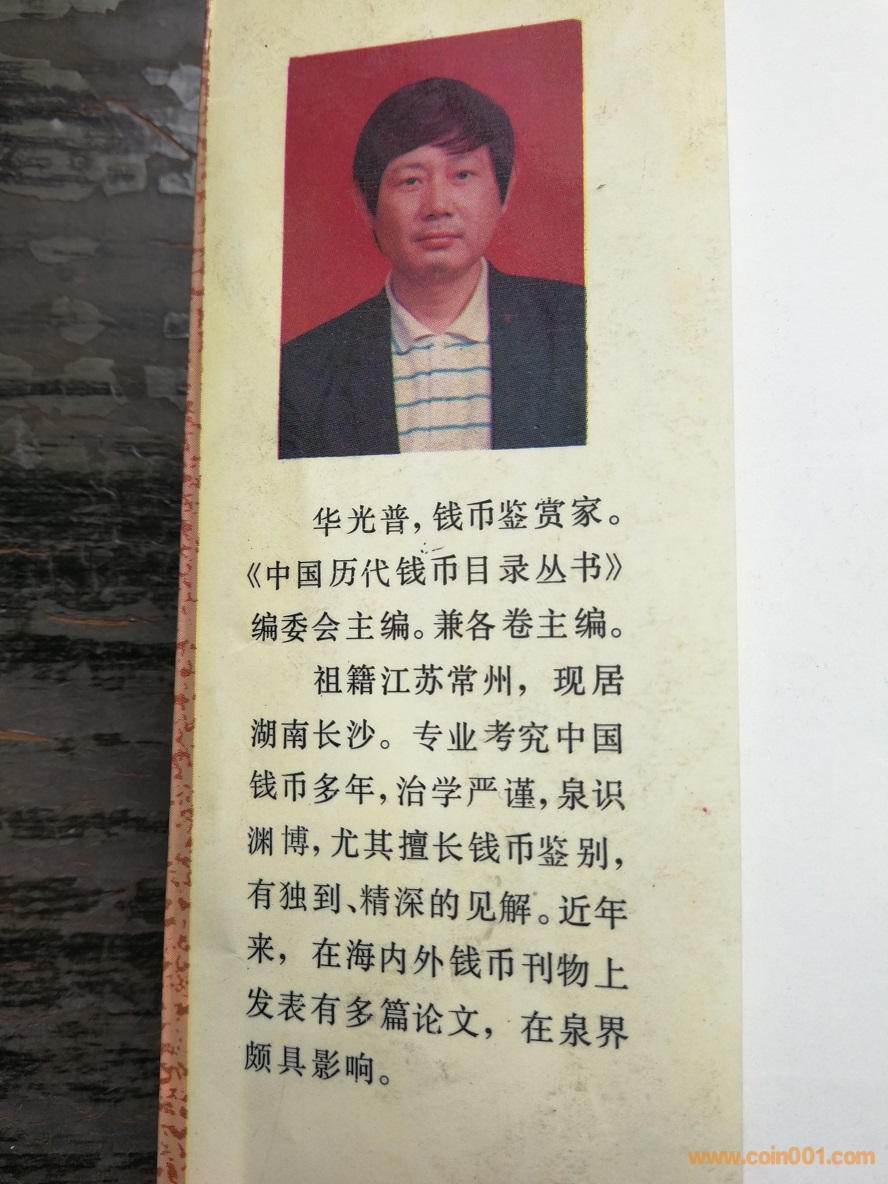 华光普，钱币鉴赏家。
《中国历代钱币目录丛书》
编委会主编。兼各卷主编。
祖籍江苏常州，现居
湖南长沙。专业考究中国
钱币多年，治学严谨，泉识
渊博，尤其擅长钱币鉴别，
有独到、精深的见解。近年
来，在海内外钱币刊物上
发表有多篇论文，在泉界
颇具影响。
www.coin001.com